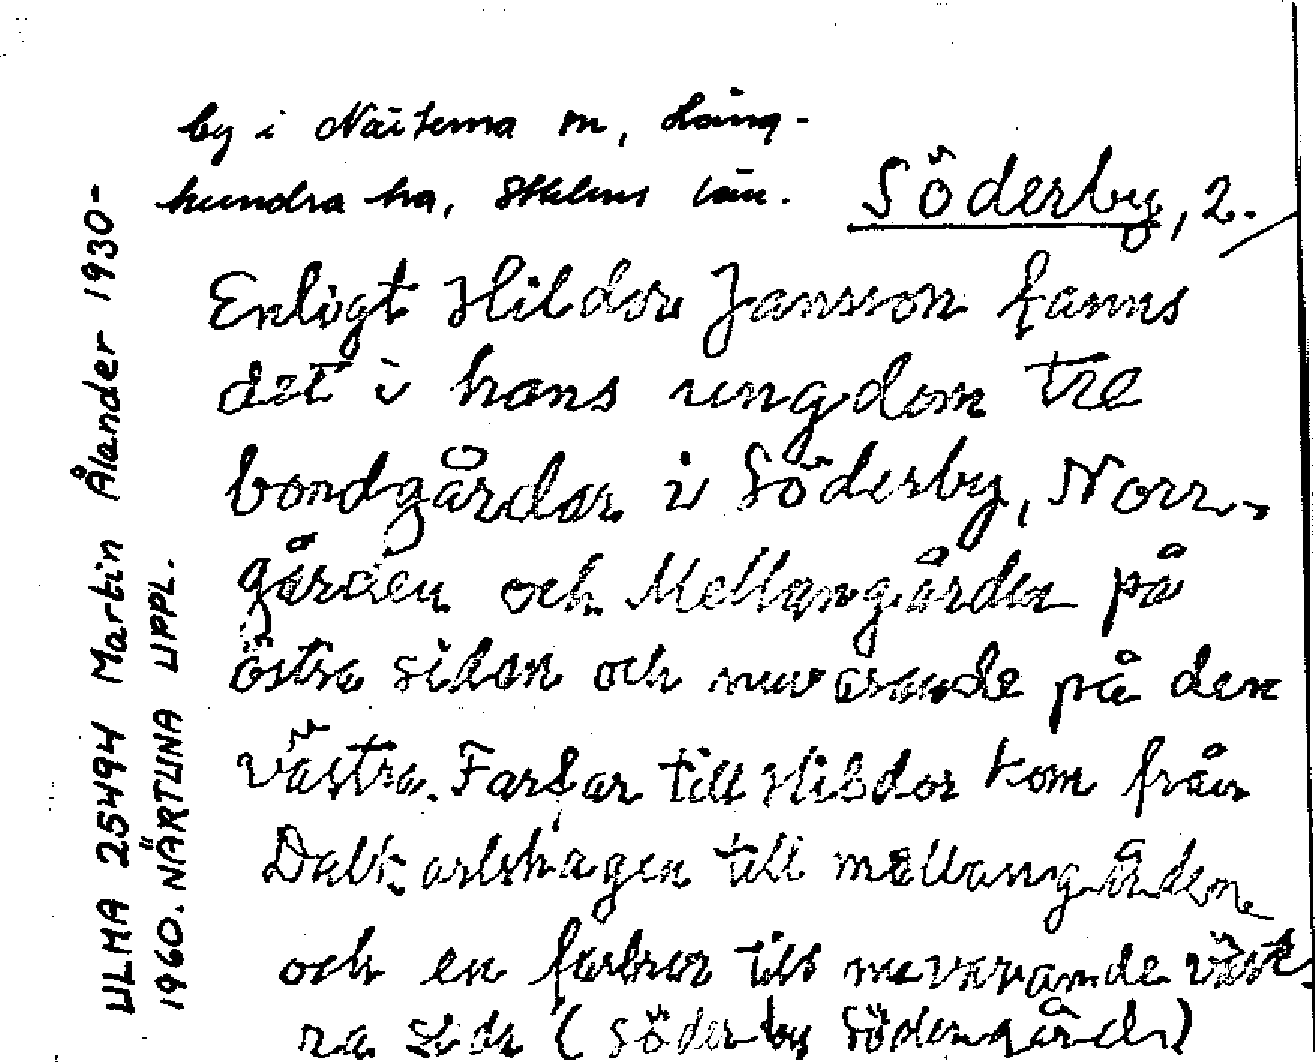 by i Närtuna sn, Lång-
hundra hd, Sthlms län.
Söderby, 2.
Enligt Hildor Jansson fanns
det i hans ungdom tre
bondgårdar i Söderby, Norr-
gården och Mellangården på
östra sidan och nuvarande på den
västra. Farfar till Hildor kom från
Dalkarlshagen till mellangården
och en farbror till nuvarande väst-
ra sida (Söderby Södergård)
ULMA 25494 Martin Ålander 1930-
1960. NÄRTUNA UPPL.